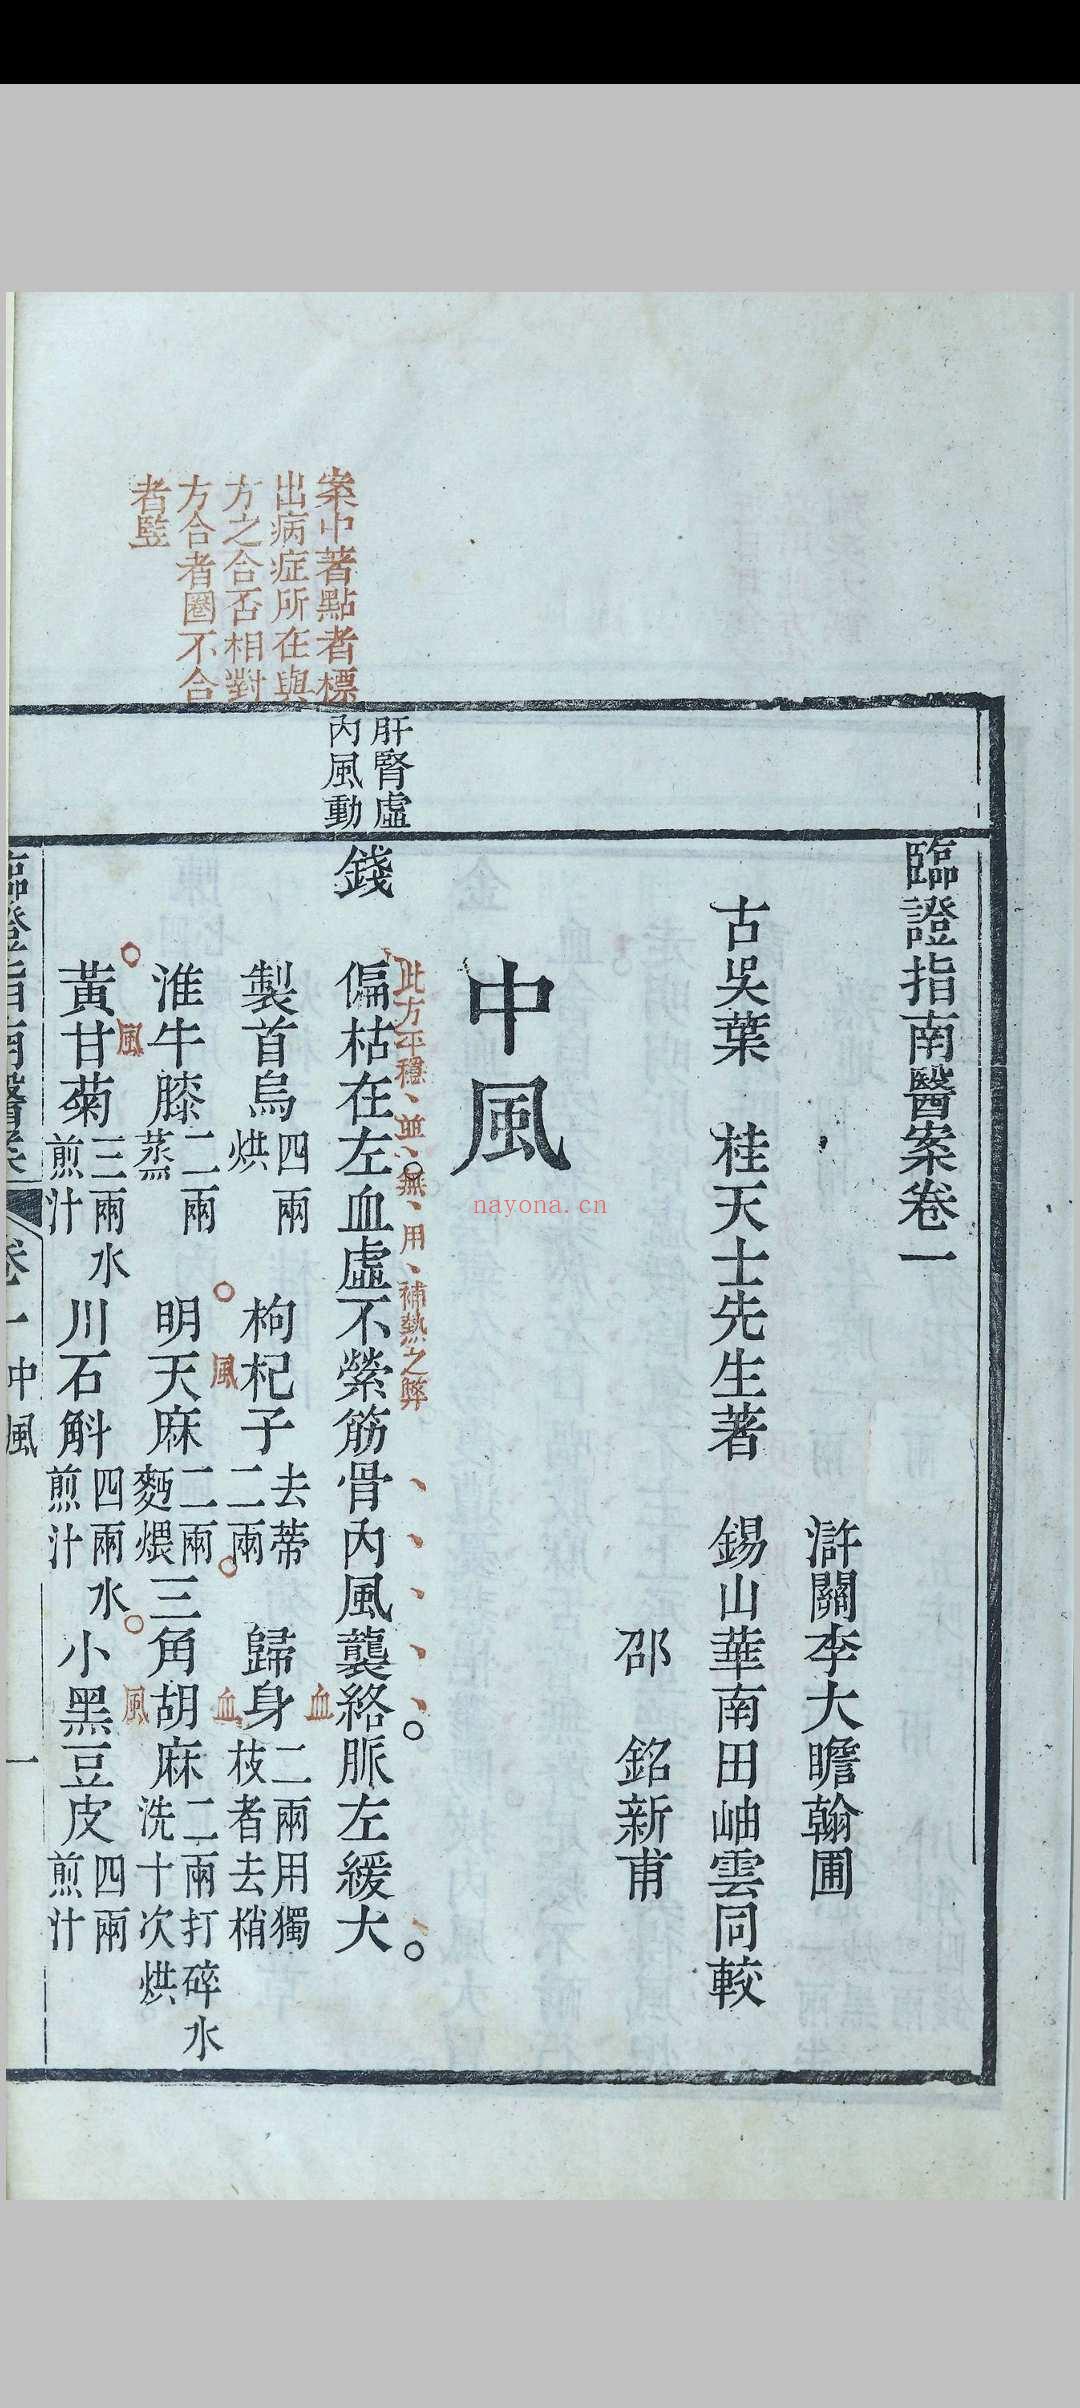 臨證指南醫案卷一
滸關李大瞻翰圃
古吳葉　桂天士先生著　錫山華南田岫雲同較
邵　銘新甫
中風
肝腎虛
內風動
錢　偏枯在左血虛不縈筋骨內風襲絡脈左緩大
此方平穩並無用補熱之弊
製首烏四兩烘　枸杞子去蒂二兩　歸身二兩用獨枝者去梢
血
風
血
淮牛膝二兩蒸　明天麻二兩麪煨　三角胡麻二兩打碎水洗十次烘
風
風
黃甘菊三兩水煎汁　川石斛四兩水煎汁　小黑豆皮四兩煎汁
案中著點者標
出病症所在與
方之合否相對
方合者圈不合
者豎
臨證指南醫案　卷一　中風　一
nayona.cn